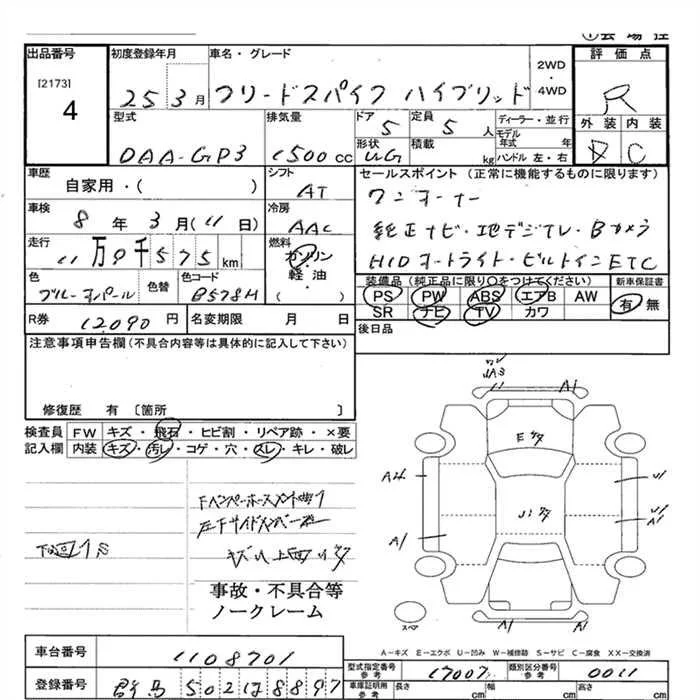 出品番号
[2173]
4
初度登録年月
25 3月
車名・グレード
フリードスパイク ハイブリッド
2WD
・
4WD
評価点
R
外装 内装
D C
型式
DAA-GP3
排気量
1500cc
ドア
5
定員
5人
形状
積載
kg
ディーラー・並行
モデル
年式 年
ハンドル 左・右
車歴
自家用・( )
シフト
AT
セールスポイント (正常に機能するものに限ります)
ワンオーナー
純正ナビ・地デジTV・Bカメラ
HIDオートライト・ビルトインETC
車検
8年 3月(11日)
冷房
AAC
走行
11万9千575km
燃料
ガソリン
軽油
( )
色
ブルーオパール
色替
色コード
B578M
装備品 (純正品に限り○をつけてください)
新車保証書
PS PW ABS エアB AW
有 無
SR ナビ TV カワ
R券 12090円
名変期限 月 日
後日品
注意事項申告欄(不具合内容等は具体的に記入して下さい)
修復歴 有 〔箇所 〕
検査員 FW キズ・飛石・ヒビ割・リペア跡・×要
記入欄 内装 キズ・汚レ・コゲ・穴・スレ・キレ・破レ
A1
E
A1
A1
A1
A1
スペア
事故・不具合等
ノークレーム
A-キズ E-エクボ U-凹み W-補修跡 S-サビ C-腐食 XX-交換済
車台番号 1108701
型式指定番号
参考
17007
類別区分番号
参考
0011
登録番号 群馬 502 ほ 8897
車庫証明用
参考
長さ cm 幅 cm 高さ cm